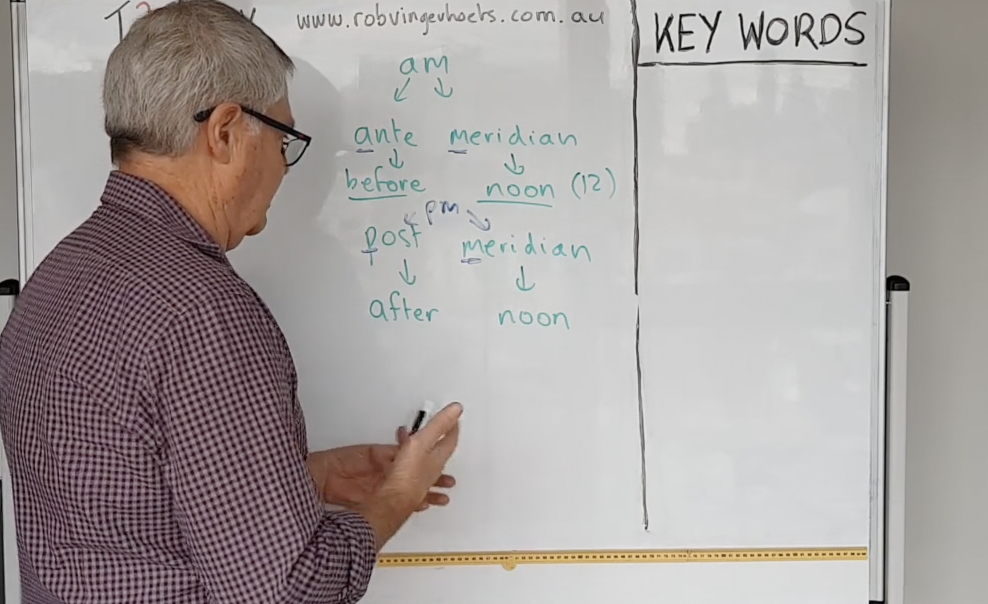 www.robvingerhoets.com.au
KEY WORDS
am
ante meridian
before noon (12)
pm
post meridian
after noon